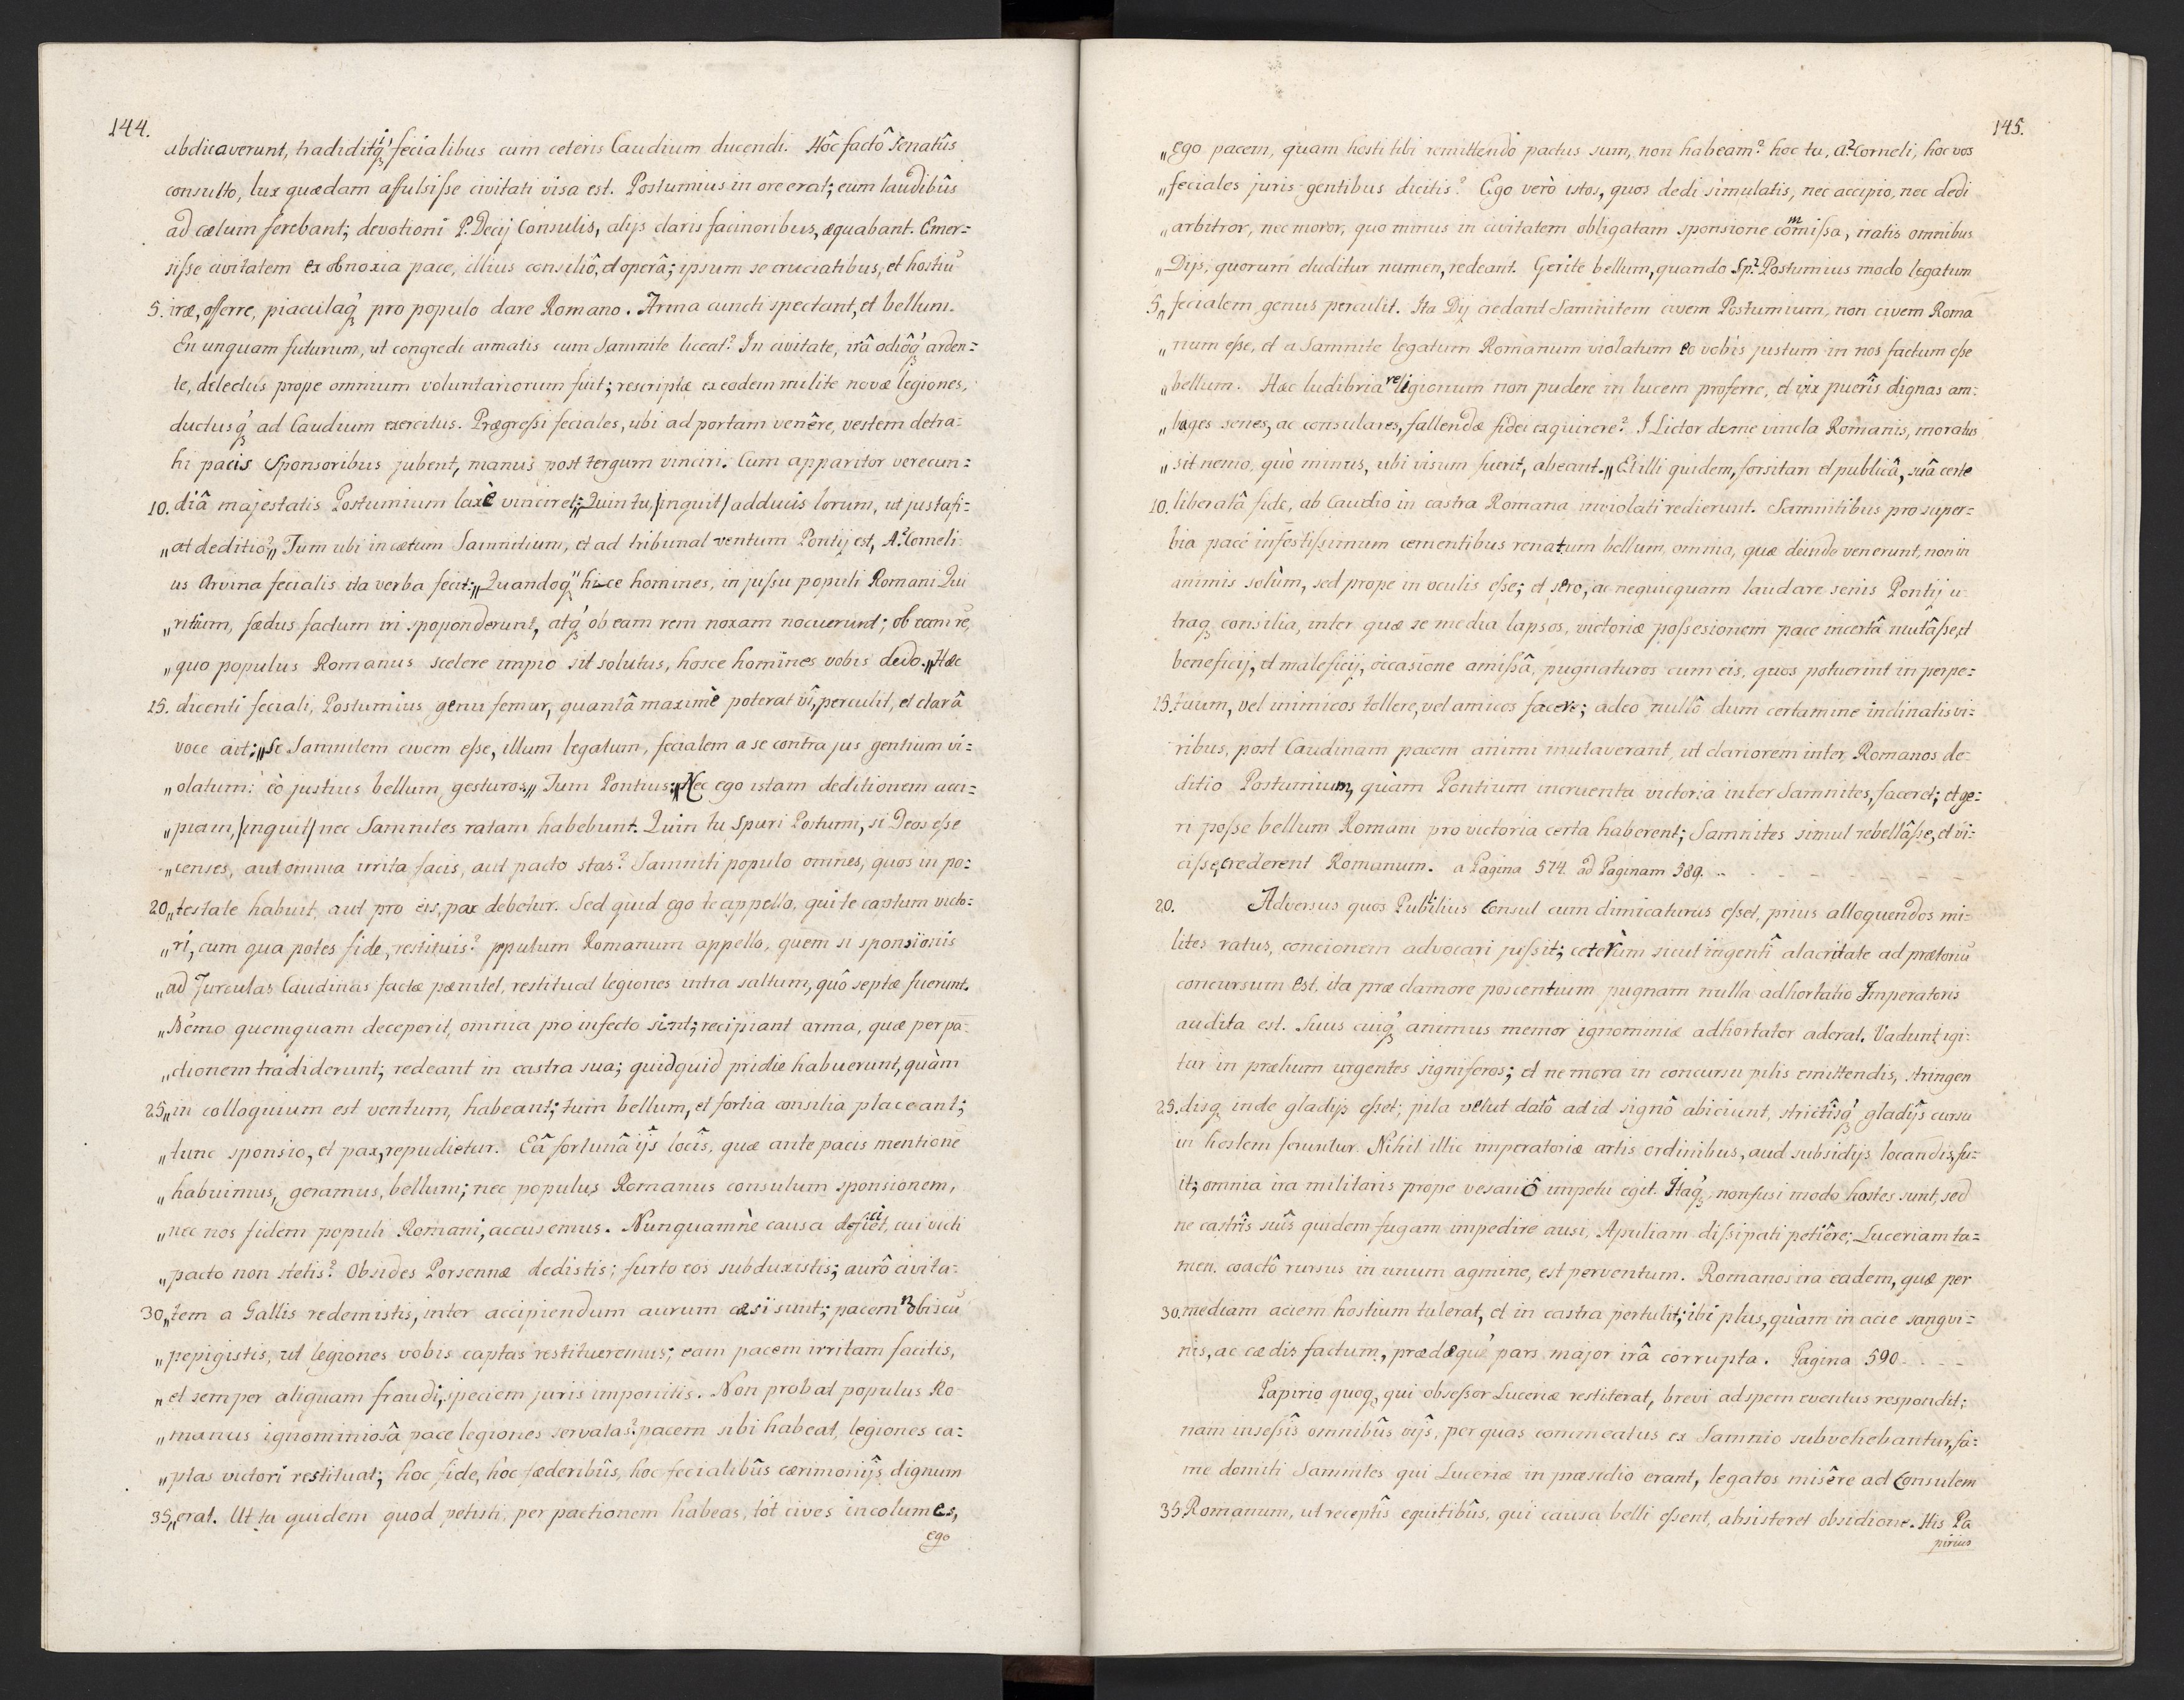 144.
abdicaverunt, traditiq́ fecialibus cum ceteris Caudium ducendi. Hôc factô Senatûs
consulto, lux quædam affulsisse civitati visa est. Postumius in ore erat; eum laudibûs
ad cælum ferebant; devotioni P. Decij Consulis, alijs claris facinoribus, æquabant. Emer=
sisse civitatem ex obnoxia pace, illius consiliô, et operâ; ipsum se cruciatibus, et hostiū
5. iræ, offerre, piaculaq́ pro populo dare Romano. Arma cuncti spectant, et bellum.
En unquam futurum, ut congredi armatis cum Samnite liceat? In civitate, irâ odiôq́ arden=
te, delectus prope omnium voluntariorum fuit; rescriptæ ex eodem milite novæ legiones,
ductusq́ ad Caudium exercitus. Prægressi feciales, ubi ad portam venêre, vestem detra=
hi pacis Sponsoribus jubent, manus post tergum vinciri. Cum apparitor verecun=
10. diâ majestatis Postumium laxè vinciret; „Quin tu, /inquit/ adducis lorum, ut justa fi=
„at deditio?„ Tum ubi in cætum Samnitium, et ad tribunal ventum Pontij est, A? Corneli
us Arvina fecialis ita verba fecit: „Quandoq́ hice homines, injussu populi Romani Qui
„ritium, fœdus factum iri spoponderunt, atq́ ob eam rem noxam nocuerunt; ob eam rē,
„quo populus Romanus scelere impio sit solutus, hosce homines vobis dedo.„ Hæc
15. dicenti feciali, Postumius genu femur, quantâ maximè poterat vî, perculit, et clarâ
voce ait: „Se Samnitem civem esse, illum legatum, fecialem a se contra jus gentium vi=
„olatum: eò justius bellum gesturos„ Tum Pontius: „Nec ego istam deditionem acci=
„piam, /inquit/ nec Samnites ratam habebunt. Quin tu Spuri Postumi, si Deos esse
„censes, aut omnia irrita facis, aut pacto stas? Samniti populo omnes, quos in po=
20. „testate habuit, aut pro eis, pax debetur. Sed quid ego te appello, qui te captum victo=
„ri, cum qua potes fide, restituis? populum Romanum appello, quem si sponsionis
„ad Furculas Caudinas factæ pænitet, restituat legiones intra saltum, quô septæ fuerunt.
„Nemo quemquam deceperit, omnia pro infecto sint; recipiant arma, quæ per pa=
„ctionem tradiderunt; redeant in castra sua; quidquid pridie habuerunt, quàm
25. „in colloquium est ventum, habeant; tum bellum, et fortia consilia placeant;
„tunc sponsio, et pax, repudietur. Eâ fortunâ ijs locîs, quæ ante pacis mentionē
„habuimus, geramus, bellum; nec populus Romanus consulum sponsionem,
„nec nos fidem populi Romani, accusemus. Nunquamne causa deficiet, cui victi
„pacto non stetis? Obsides Porsennæ dedistis; furto eos subduxistis; aurô civita=
30. „tem a Gallis redemistis, inter accipiendum aurum cæsi sunt; pacem nobiscū
„pepigistis, ut legiones vobis captas restitueremus; eam pacem irritam facitis,
„et semper aliquam fraudi, speciem juris imponitis. Non probat populus Ro
„manus ignominiosâ pace legiones servatas? pacem sibi habeat, legiones ca=
„ptas victori restituat; hoc fide, hoc fœderibûs, hoc fecialibûs cærimonijs dignum
35. „erat. Ut tu quidem quod petisti, per pactionem habeas, tot cives incolumes,
ego
145.
„ego pacem, quam hosti tibi remittendo pactus sum, non habeam? hoc tu, A? Corneli, hoc vos
„feciales juris gentibus dicitis? Ego verò istos, quos dedi simulatis, nec accipio, nec dedi
„arbitror, nec moror, quo minus in civitatem obligatam sponsione commissa, iratis omnibus
„Dijs, quorum eluditur numen, redeant. Gerite bellum, quando Sp? Postumius modo legatum
5. „fecialem genus perculit. Ita Dij credant Samnitem civem Postumium, non civem Roma
„num esse, et a Samnite legatum Romanum violatum eo vobis justum in nos factum esse
„bellum. Hæc ludibria religionum non pudere in lucem proferre, et vix puerîs dignas am=
„bages senes, ac consulares, fallendæ fidei exquirere? I Lictor deme vincla Romanis, moratus
„sit nemo, quò minus, ubi visum fuerit, abeant.„ Et illi quidem, forsitan et publicâ, suâ certe
10. liberatâ fide, ab Caudio in castra Romana inviolati redierunt. Samnitibus pro super=
bia pace infestissimum cernentibus renatum bellum, omnia, quæ deinde venerunt, non in
animis solùm, sed prope in oculis esse; et sero, ac nequicquam laudare senis Pontij u
traq́ consilia, inter quæ se media lapsos, victoriæ possesionem pace incertâ mutâsse, et
beneficij, et maleficij, occasione amissâ, pugnaturos cum eis, quos potuerint in perpe=
15. tuum, vel inimicos tollere, vel amicos facere; adeo nullô dum certamine inclinatis vi=
ribus, post Caudinam pacem animi mutaverant, ut clariorem inter Romanos de=
ditio Postumium, quàm Pontium incruenta victoria inter Samnites, faceret; et ge=
ri posse bellum Romani pro victoria certa haberent; Samnites simul rebellâsse, et vi=
cisse, crederent Romanum. a Pagina 574. ad Paginam 389.
20. Adversus quos Publilius Consul cum dimicaturus esset, prius alloquendos mi=
lites ratus, concionem advocari jussit; ceterùm sicut ingenti alacritate ad prætoriū
concursum est, ita præ clamore poscentium pugnam nulla adhortatio Imperatoris
audita est. Suus cuiq́ animus memor ignominiæ adhortator aderat. Vadunt igi=
tur in prælium urgentes signiferos; et ne mora in concursu pilis emittendis, stringen
25. disq́ inde gladijs esset; pila velut datô ad id signô abiciunt, strictîsq́ gladijs cursu
in hostem feruntur. Nihil illic imperatoriæ artis ordinibus, aud subsidijs locandis, fu=
it; omnia ira militaris prope vesanô impetu egit. Itaq́, non fusi modo hostes sunt, sed
ne castrîs suîs quidem fugam impedire ausi, Apuliam dissipati petiêre; Luceriam ta=
men, coactô rursus in unum agmine, est perventum. Romanos ira eadem, quæ per
30. mediam aciem hostium tulerat, et in castra pertulit; ibi plus, quàm in acie sangvi=
nis, ac cædis factum, prædæque pars major irâ corrupta. Pagina 590.
Papirio quoq́, qui obsessor Luceriæ restiterat, brevi ad spem eventus respondit;
nam insessîs omnibûs vijs, per quas commeatus ex Samnio subvehebantur, fa=
me domiti Samnites qui Luceriæ in præsidio erant, legatos misêre ad Consulem
35. Romanum, ut receptîs equitibûs, qui causa belli essent, absisteret obsidione. His Pa
pirius